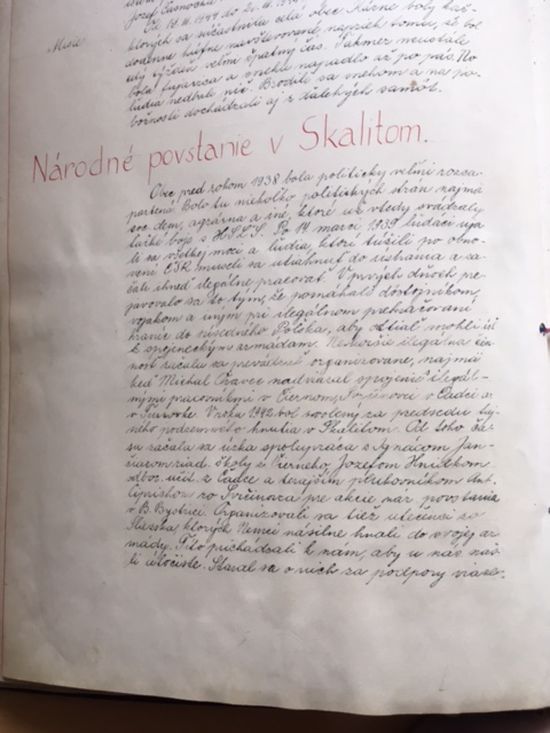 Jozef Časnocha
Od 18. III. 1944 do 26. III. 1944
"Misie"
ktorých sa súčastnila celá obec. Kázne boly každodenne
húfne navštevované, napriek tomu, že bol
celý týždeň veľmi špatný čas. Takmer neustále
bola fujavica a snehu napadlo až po pás. No
ľudia nedbali nič. Brodili sa snehom a na pobožnosti
dochádzali aj z ďalekých samôt.
Národné povstanie v Skalitom.
Obec pred rokom 1938 bola politicky veľmi rozcapartená.
Bolo tu niekoľko politických strán najmä
soc. dem., agrárna a iné, ktoré už vtedy svádzaly
ťažké boje s HSĽS. Po 14 marci 1939 ľudáci ujali
sa všetkej moci a ľudia, ktorí túžili po obnovení
ČSR museli sa utiahnuť do ústrania a začali
ihneď ilegálne pracovať. V prvých dňoch prejavovalo
sa to tým, že pomáhali dôstojníkom,
vojakom a iným pri ilegálnom prekračovaní
hraníc do susedného Poľska, aby odtiaľ mohli ísť
k spojeneckým armádam. Neskoršie ilegálna činnosť
začala sa prevádzať organizovane, najmä
keď Michal Čravec nadviazal spojenie s ilegálnymi
pracovníkmi v Čiernom, Svrčinovci v Čadci a
v Turzovke. V roku 1942 bol zvolený za predsedu tajného
podzemného hnutia v Skalitom. Od toho času
začala sa úzka spolupráca s Ignácom Jančiarom
riad. školy z Čierneho, Jozefom Hnidkom
odbor. učit. z Čadce a terajším plukovníkom Ant.
Cyprichom zo Svrčinovca pre akcie nár. povstania
v B. Bystrici. Organizovali sa tiež utečenci zo
Sliezska, ktorých Nemci násilne hnali do svojej armády.
Títo prichádzali k nám, aby u nás našli
útočište. Staral sa o nich za podpory viace-